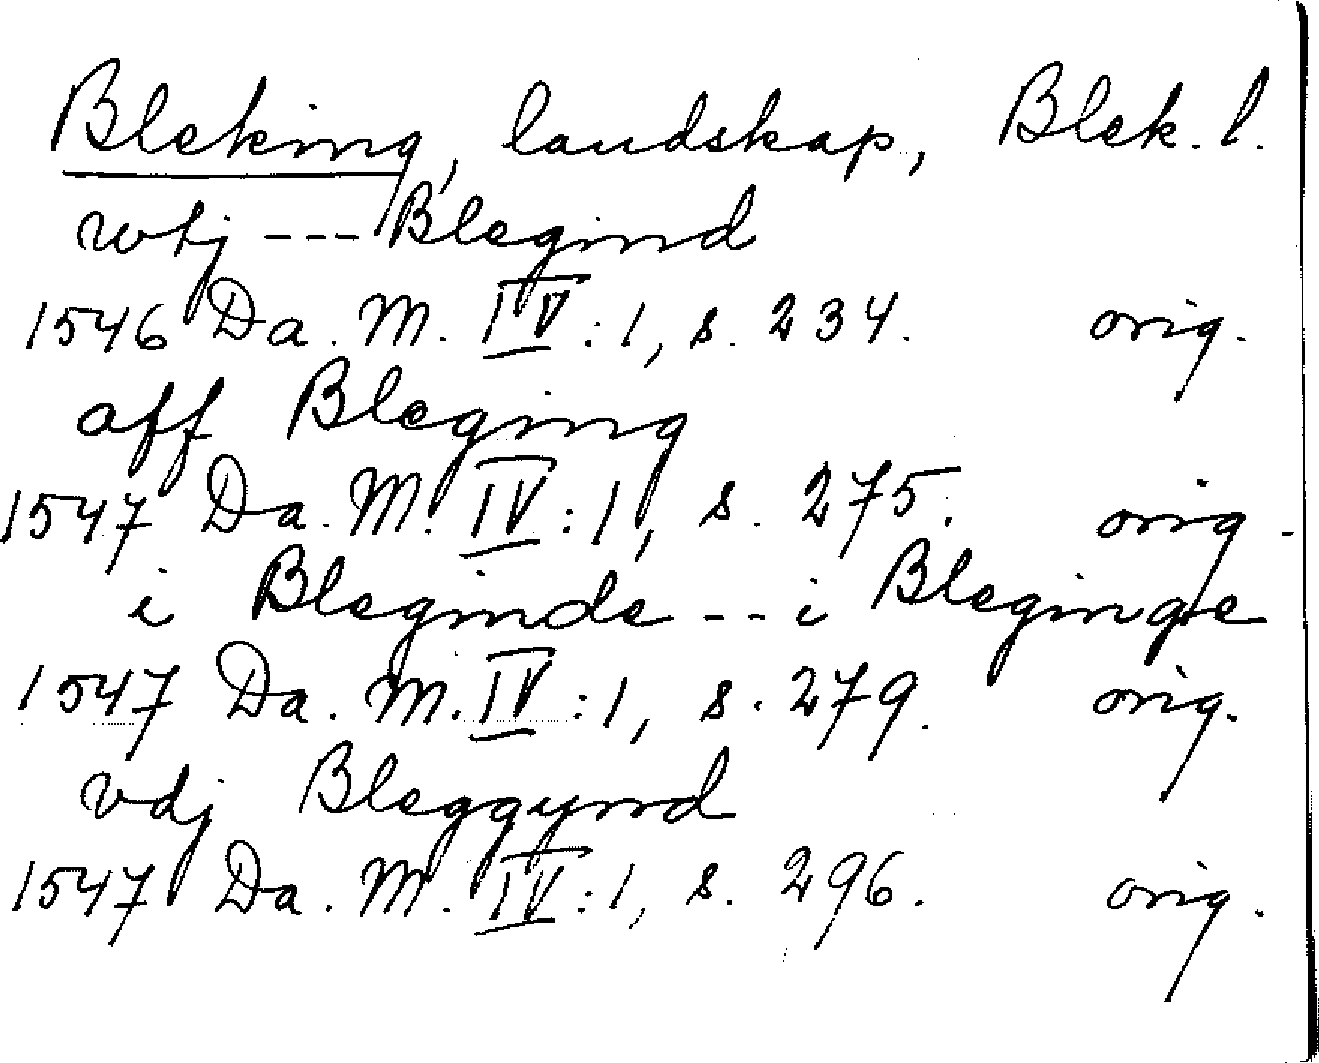 Bleking, landskap, Blek. l.
wtj --- Blegind
1546 Da. M. IV:1, s. 234. orig.
aff Bleging
1547 Da. M. IV:1, s. 275. orig.
i Bleginde -- i Bleginge
1547 Da. M. IV:1, s. 279. orig.
vdj Bleggynd
1547 Da. M. IV:1, s. 296. orig.